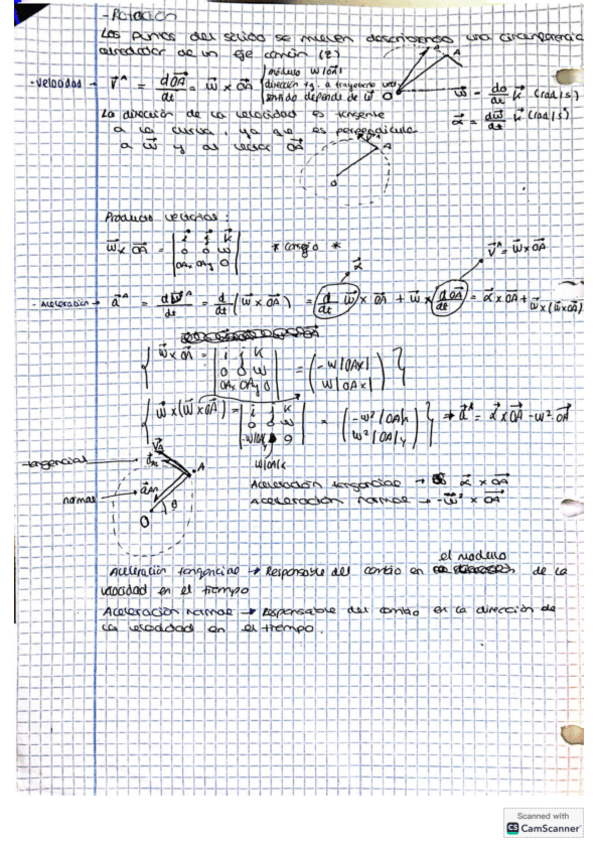 - Rotación
Los puntos del solido se mueven describiendo una circunferencia
alrededor de un eje común (z)
- velocidad → V^A = dOA/dt = w x OA { módulo w|OA| dirección tg. a trayectoria sentido depende de w
w = dθ/dt k (rad/s)
α = dw/dt k (rad/s²)
La dirección de la velocidad es tangente
a la curva, ya que es perpendicular
a w y al vector OA
A
O
A
O
Producto vectorial:
w x OA = | i j k / 0 0 w / OAx OAy 0 | * consejo *
α
V^A = w x OA
- Aceleración → a^A = dV^A/dt = d/dt (w x OA) = d/dt w x OA + w x d OA/dt = α x OA + w x (w x OA)
{ w x OA = | i j k / 0 0 w / OAx OAy 0 | = ( -w|OAx| / w|OAx| ) }
{ w x (w x OA) = | i j k / 0 0 w / -w|OA|y 0 | = ( -w²|OA|x / w²|OA|y ) } ⇒ a^A = α x OA - w² OA
w|OA|x
tangencial
normal
A
O
θ
Aceleración tangencial → α x OA
Aceleración normal → -w² x OA
Aceleración tangencial → Responsable del cambio en el modulo de la
velocidad en el tiempo
Aceleración normal → Responsable del cambio en la dirección de
la velocidad en el tiempo.
Scanned with
CS CamScanner